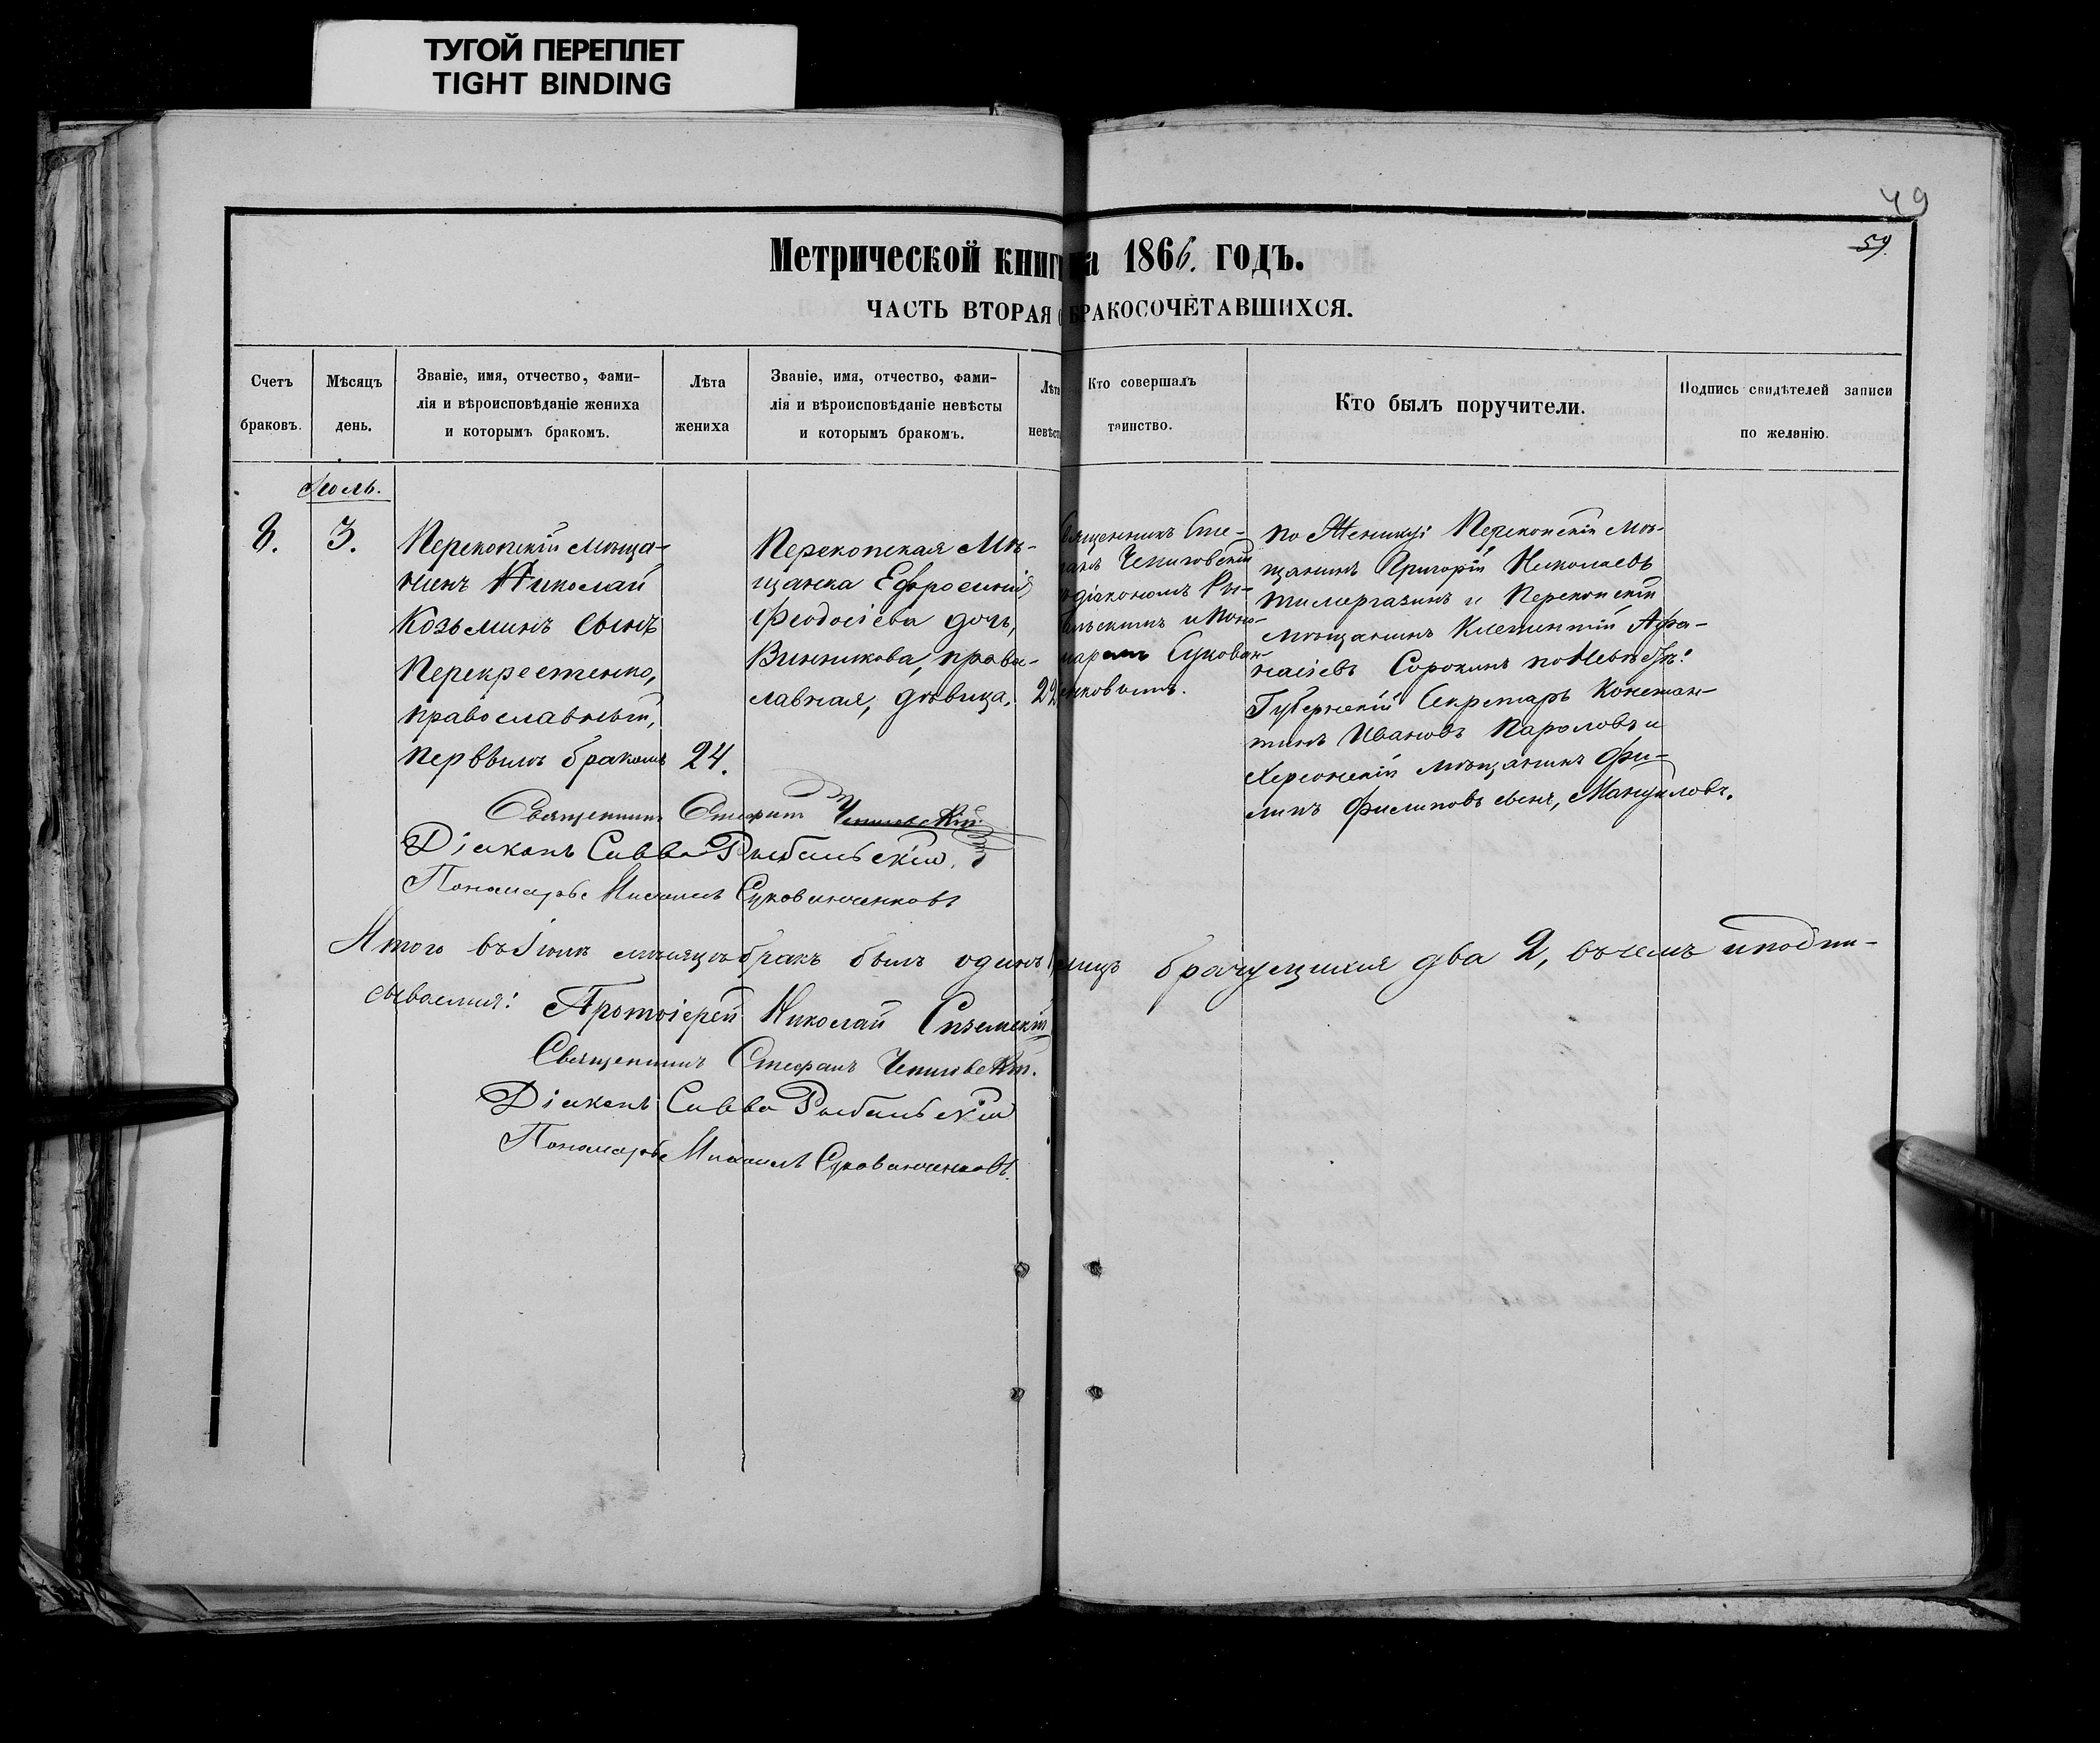 ТУГОЙ ПЕРЕПЛЕТ
TIGHT BINDING
49
59.
Метрической книг на 1866. годъ.
ЧАСТЬ ВТОРАЯ О БРАКОСОЧЕТАВШИХСЯ.
Счетъ
браковъ.
Мѣсяцъ
день.
Званіе, имя, отчество, фами-
лія и вѣроисповѣданіе жениха
и которымъ бракомъ.
Лѣта
жениха
Званіе, имя, отчество, фами-
лія и вѣроисповѣданіе невѣсты
и которымъ бракомъ.
Лѣта
невѣст
Кто совершалъ
таинство.
Кто былъ поручители.
Подпись свидѣтелей записи
по желанію.
Іюль.
8.
3.
Перекопскій мѣща-
нинъ Николай
Козьминъ сынъ
Перекрестенко,
православный,
первымъ бракомъ
24.
Перекопская мѣ-
щанка Ефросинія
Феодосіева дочь,
Винникова, право-
славная, дѣвица.
22
Священникъ Сте-
фанъ Чепиговскій
съ діакономъ Ры-
бальскимъ и поно-
маремъ Сукован-
ченковымъ.
по Женихѣ Перекопскій мѣ-
щанинъ Григорій Николаевъ
и Перекопскій
мѣщанинъ Климентій Афа-
насіевъ Сорокинъ по Невѣстѣ:
Губернскій Секретарь Констан-
тинъ Ивановъ Паромовъ и
Херсонскій мѣщанинъ Фи-
липъ Филиповъ сынъ, Мануйловъ.
Священникъ Стефанъ Чепиговскій
Діаконъ Савва Рыбальскій.
Пономарь Михаилъ Сукованченковъ
Итого въ Іюлѣ мѣсяцѣ бракъ былъ одинъ 1, лицъ брачущихся два 2, въ чемъ и подпи-
сываемся: Протоіерей Николай Сняемскій
Священникъ Стефанъ Чепиговскій.
Діаконъ Савва Рыбальскій
Пономарь Михаилъ Сукованченковъ.